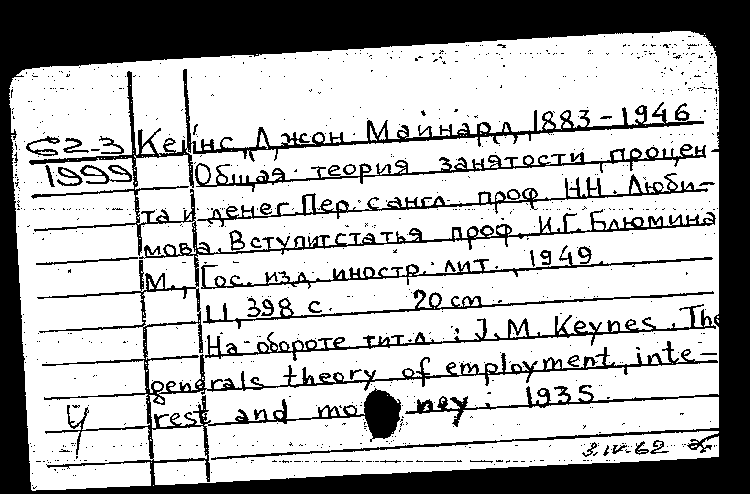 62-3 Кейнс, Джон Майнард, 1883-1946
1999 Общая теория занятости, процен-
та и денег. Пер. с англ. проф. Н.Н. Люби-
мова. Вступит. статья проф. И.Г. Блюмина
М., Гос. изд. иностр. лит., 1949.
LI, 398 с. 20 cm.
На обороте тит. л.: J.M. Keynes. The
generals theory of employment, inte-
rest and mo ney: 1935.
3.IV.62